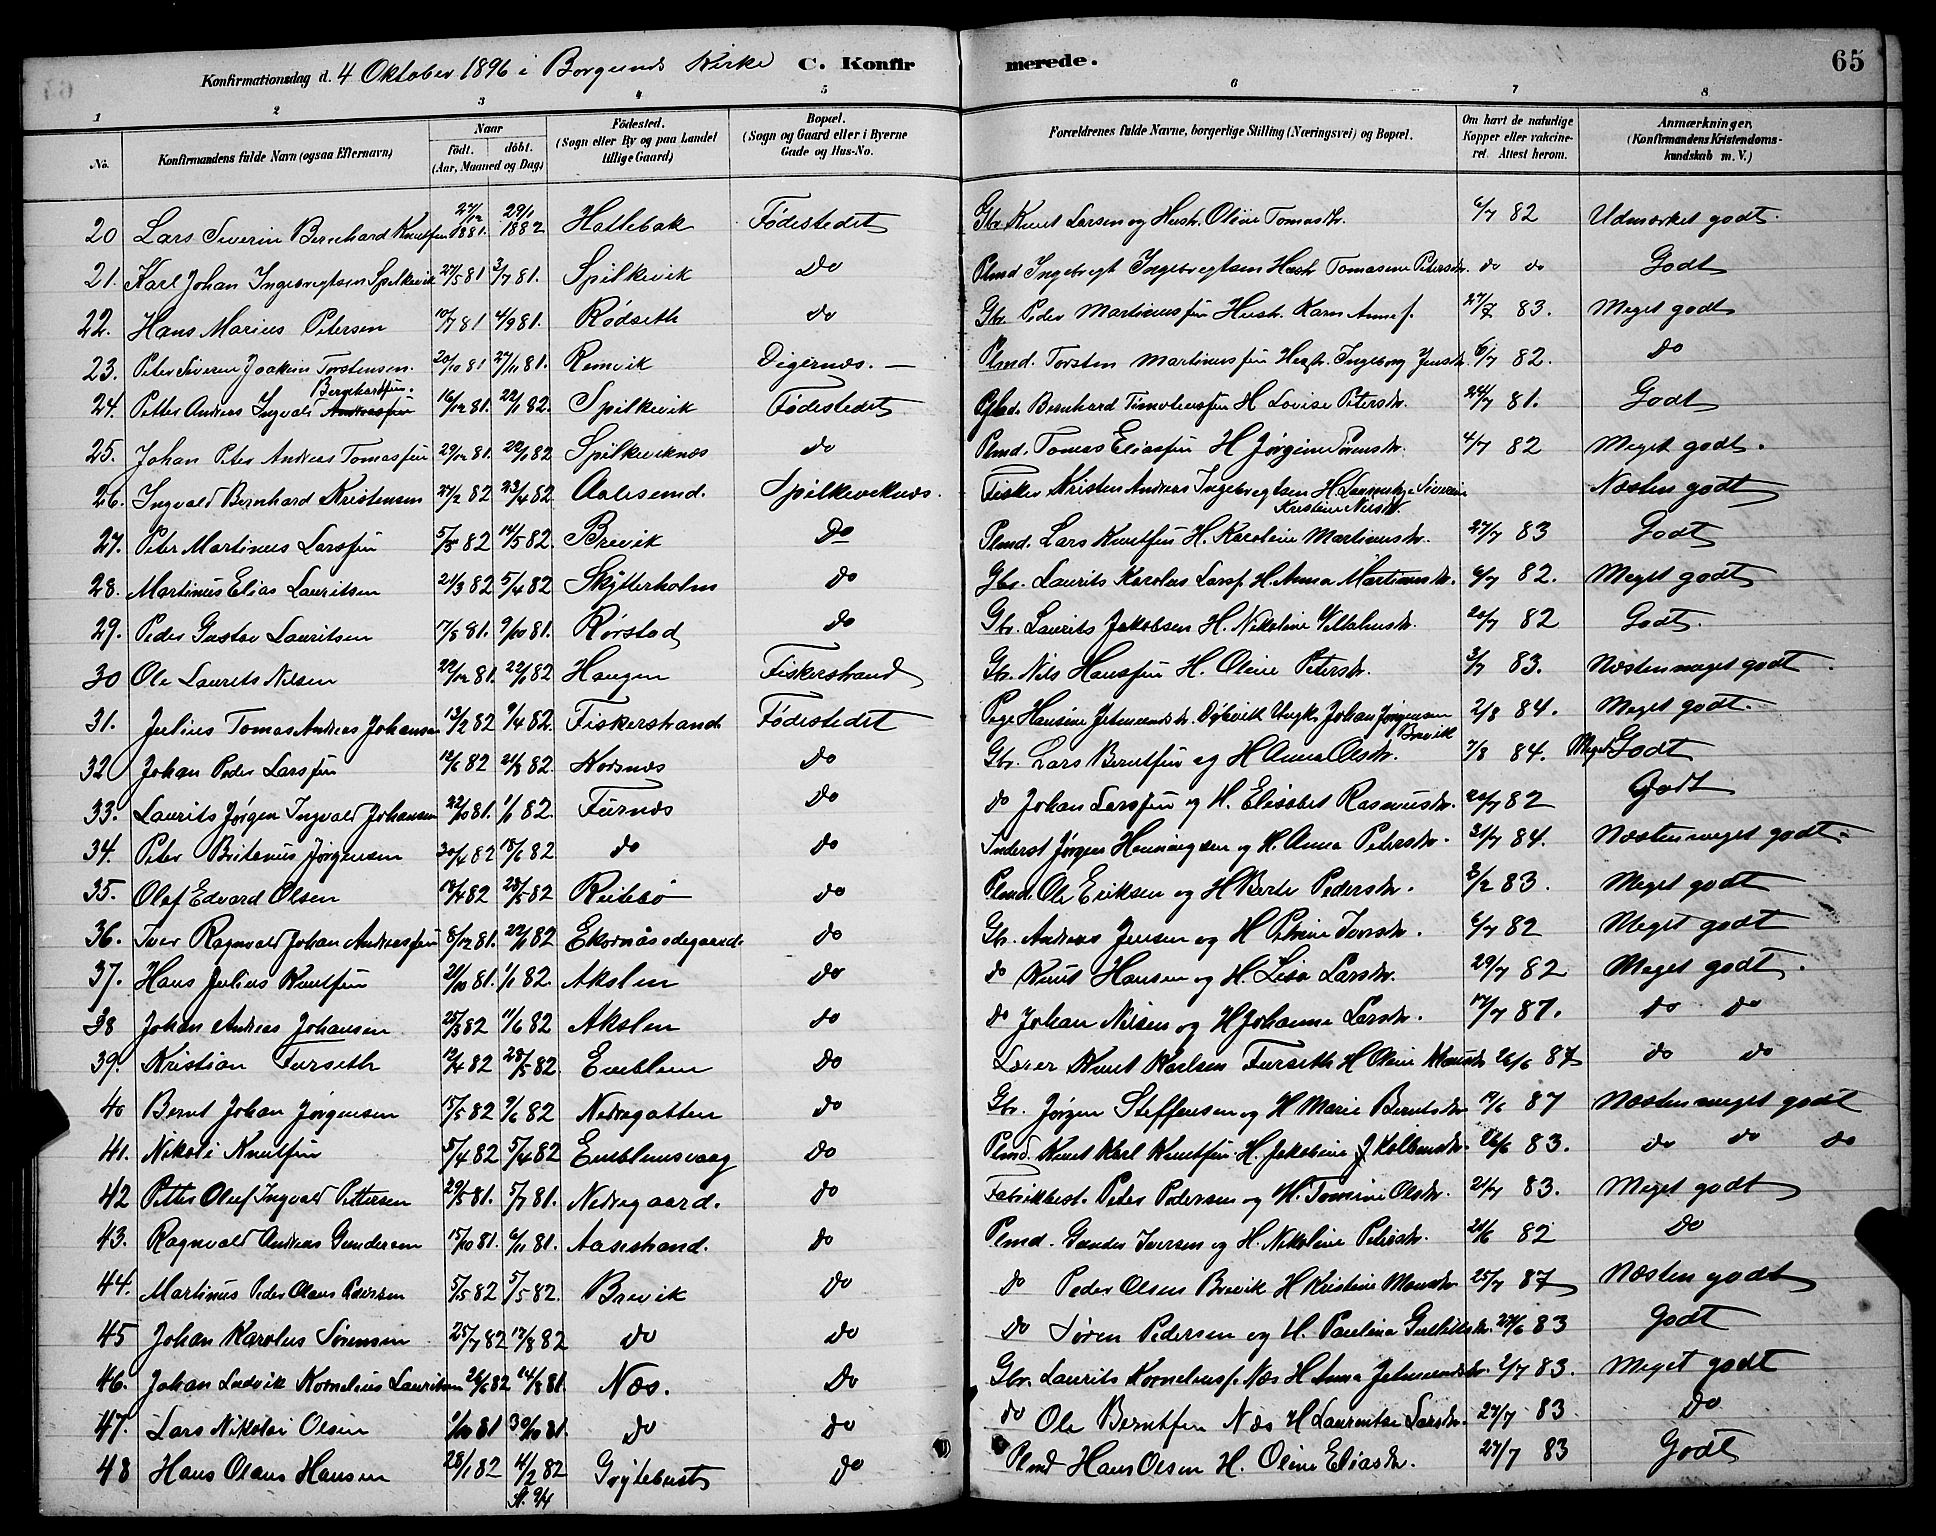 Konfirmationsdag d. 4 Oktober 1896 i Borgunds Kirke C. Konfirmerede. 65
1 2 3 4 5 6 7 8
No. Konfirmandens fulde Navn (ogsaa Efternavn) Naar födt. döbt. (Aar, Maaned og Dag) Födested. (Sogn eller By og paa Landet tillige Gaard) Bopæl. (Sogn og Gaard eller i Byerne Gade og Hus-No. Forældrenes fulde Navne, borgerlige Stilling (Næringsvei) og Bopæl. Om havt de naturlige Kopper eller vakcineret. Attest herom. Anmærkninger, (Konfirmandens Kristendomskundskab m. V.)
20 Lars Severin Bernhard Knutsen 27/12 1881. 29/1 1882 Hatlebak Fødestedet Gbr. Knut Larsen og Hustr. Oline Tomasdr. 6/7 82 Udmærket godt.
21. Karl Johan Ingebregtsen Spilkevik 27/5 81 3/7 81. Spilkevik Do Plmd Ingebregt Ingebregtsen Hustr Tomasine Petersdr. do do Godt
22. Hans Marius Petersen 10/7 81 4/9 81. Rødseth do Gbr. Peder Martinussen Hustr. Karn Annef. 27/7 83. Meget godt
23. Peter Severin Joakim Torstensen. 20/10 81 27/11 81. Remvik Digernæs. Plmd. Torsten Martinussen Hustr. Ingeborg Jensdr 6/7 82. do
24. Petter Andreas Ingvald Bernhardsen. 16/12 81. 22/1 82. Spilkevik Fødestedet Plmd. Bernhard Timoteussen H Lovise Petersdr. 24/7 81. Godt
25. Johan Peter Andreas Tomassen 29/12 81. 22/1 82 Spilkeviknæs do Plmd. Tomas Eliassen H Jørgine Sørensdr. 4/7 82 Meget godt.
26. Ingvald Bernhard Kristensen 27/2 82 23/4 82. Aalesund. Spilkeviknæs. Fisker Kristen Andreas Ingebregtsen H. Severine Kristine Nilsdr. Næsten godt
27. Peter Martinus Larssen 5/3 82 14/5 82. Brevik Do Plmd. Lars Knutsen H. Karoline Martinusdr. 27/7 83 Godt
28. Martinus Elias Lauritsen 21/3 82 5/4 82 Skytterholm do Gbr. Laurits Karolus Larsf. H. Anna Martinusdr. 6/7 82. Meget godt
29. Peder Gustav Lauritsen 7/8 81. 9/10 81. Rørstad do Gbr. Laurits Jakobsen H. Nikoline Villalmsdr. 20/7 82 Godt.
30 Ole Laurits Nilsen 22/12 81. 22/1 82 Haugen Fiskerstrand Gbr. Nils Hanssen H. Oline Petersdr. 3/7 83. Næsten meget godt
31. Julius Tomas Andreas Johansen 13/2 82 9/4 82. Fiskerstrand Fødestedet Pige Hansine Jetmundsdr. Dybvik Ungk. Johan Jørgensen Brevik 2/8 84. Meget godt.
32 Johan Peder Larssen 12/6 82 21/8 82. Korsnæs Do Gbr. Lars Berntsen og H Anna Olsdr. 7/8 84. Meget Godt
33. Laurits Jørgen Ingvald Johansen 22/10 81. 1/1 82. Furnæs Do do Johan Larssen og H. Elisabet Rasmusdr. 20/7 82 Godt
34. Peter Britenius Jørgensen 30/4 82 18/6 82 do do Inderst Jørgen Henningsen og H. Anna Petersdr. 31/7 84. Næsten meget godt.
35. Olaf Edvard Olsen 18/4 82 28/5 82 Reitebø do Plmd. Ole Eriksen og H Berte Pedersdr. 3/2 83. Meget godt
36. Iver Ragnvald Johan Andreassen 8/12 81. 22/1 82 Ekornæsødegaard. do Gbr. Andreas Jensen og H Petrine Iversdr. 6/7 82 Meget godt
37. Hans Julius Knutsen 21/10 81. 1/1 82. Akslen do do Knut Hansen og H. Lisa Larsdr. 29/7 82 Meget godt.
38 Johan Andreas Johansen 25/3 82 11/6 82 Akslen do do Johan Nilsen og H Johanne Larsdr. 17/7 87. do do
39. Kristian Furseth 12/4 82 28/5 82. Emblem do Lærer Knut Karlsen Furseth H Oline Knutsdr 26/6 87 do do
40 Bernt Johan Jørgensen 15/5 82 9/6 82 Nedregotten do Gbr. Jørgen Steffensen og H Marie Berntsdr 19/6 87 Næsten meget godt
41. Nikolai Knutsen 5/4 82 5/4 82 Emblemsvaag do Plmd. Knut Karl Knutsen H. Jakobine J Kolbensdr. 26/6 83. do do do
42 Petter Oluf Ingvald Pettersen 29/5 81. 5/7 81. Nedregaard. do Fabrikbest. Peter Pedersen og H. Tomine Olsdr. 21/7 83. Meget godt
43. Ragnvald Andreas Gundersen 15/10 81. 6/11 81. Aasestrand. do Plmd. Gunder Iversen og H. Nikoline Petersdr. 21/6 82 Do
44. Martinus Peder Olaus Pedersen 5/5 82 5/5 82. Brevik do do Peder Olsen Brevik H Kristine Monsdr 25/7 87 Næsten godt
45 Johan Karolus Sørensen 25/7 82 17/8 82 do do do Søren Pedersen og H. Pauline 27/6 83 Godt
46. Johan Ludvik Kornelius Lauritsen 26/6 82 14/8 81 Næs. Do Gbr. Laurits Korneliusf. Næs H Anna Jetmundsdr. 2/7 83. Meget godt
47. Lars Nikolai Olsen 1/10 81 30/10 81. do do do Ole Berntsen Næs H Laurentse Larsdr. 27/7 83 Do
48 Hans Olaus Hansen 28/1 82 4/2 82 St. 9/4 Grytebust do Plmd Hans Olsen H. Oline Eliasdr. 27/7 83 Godt